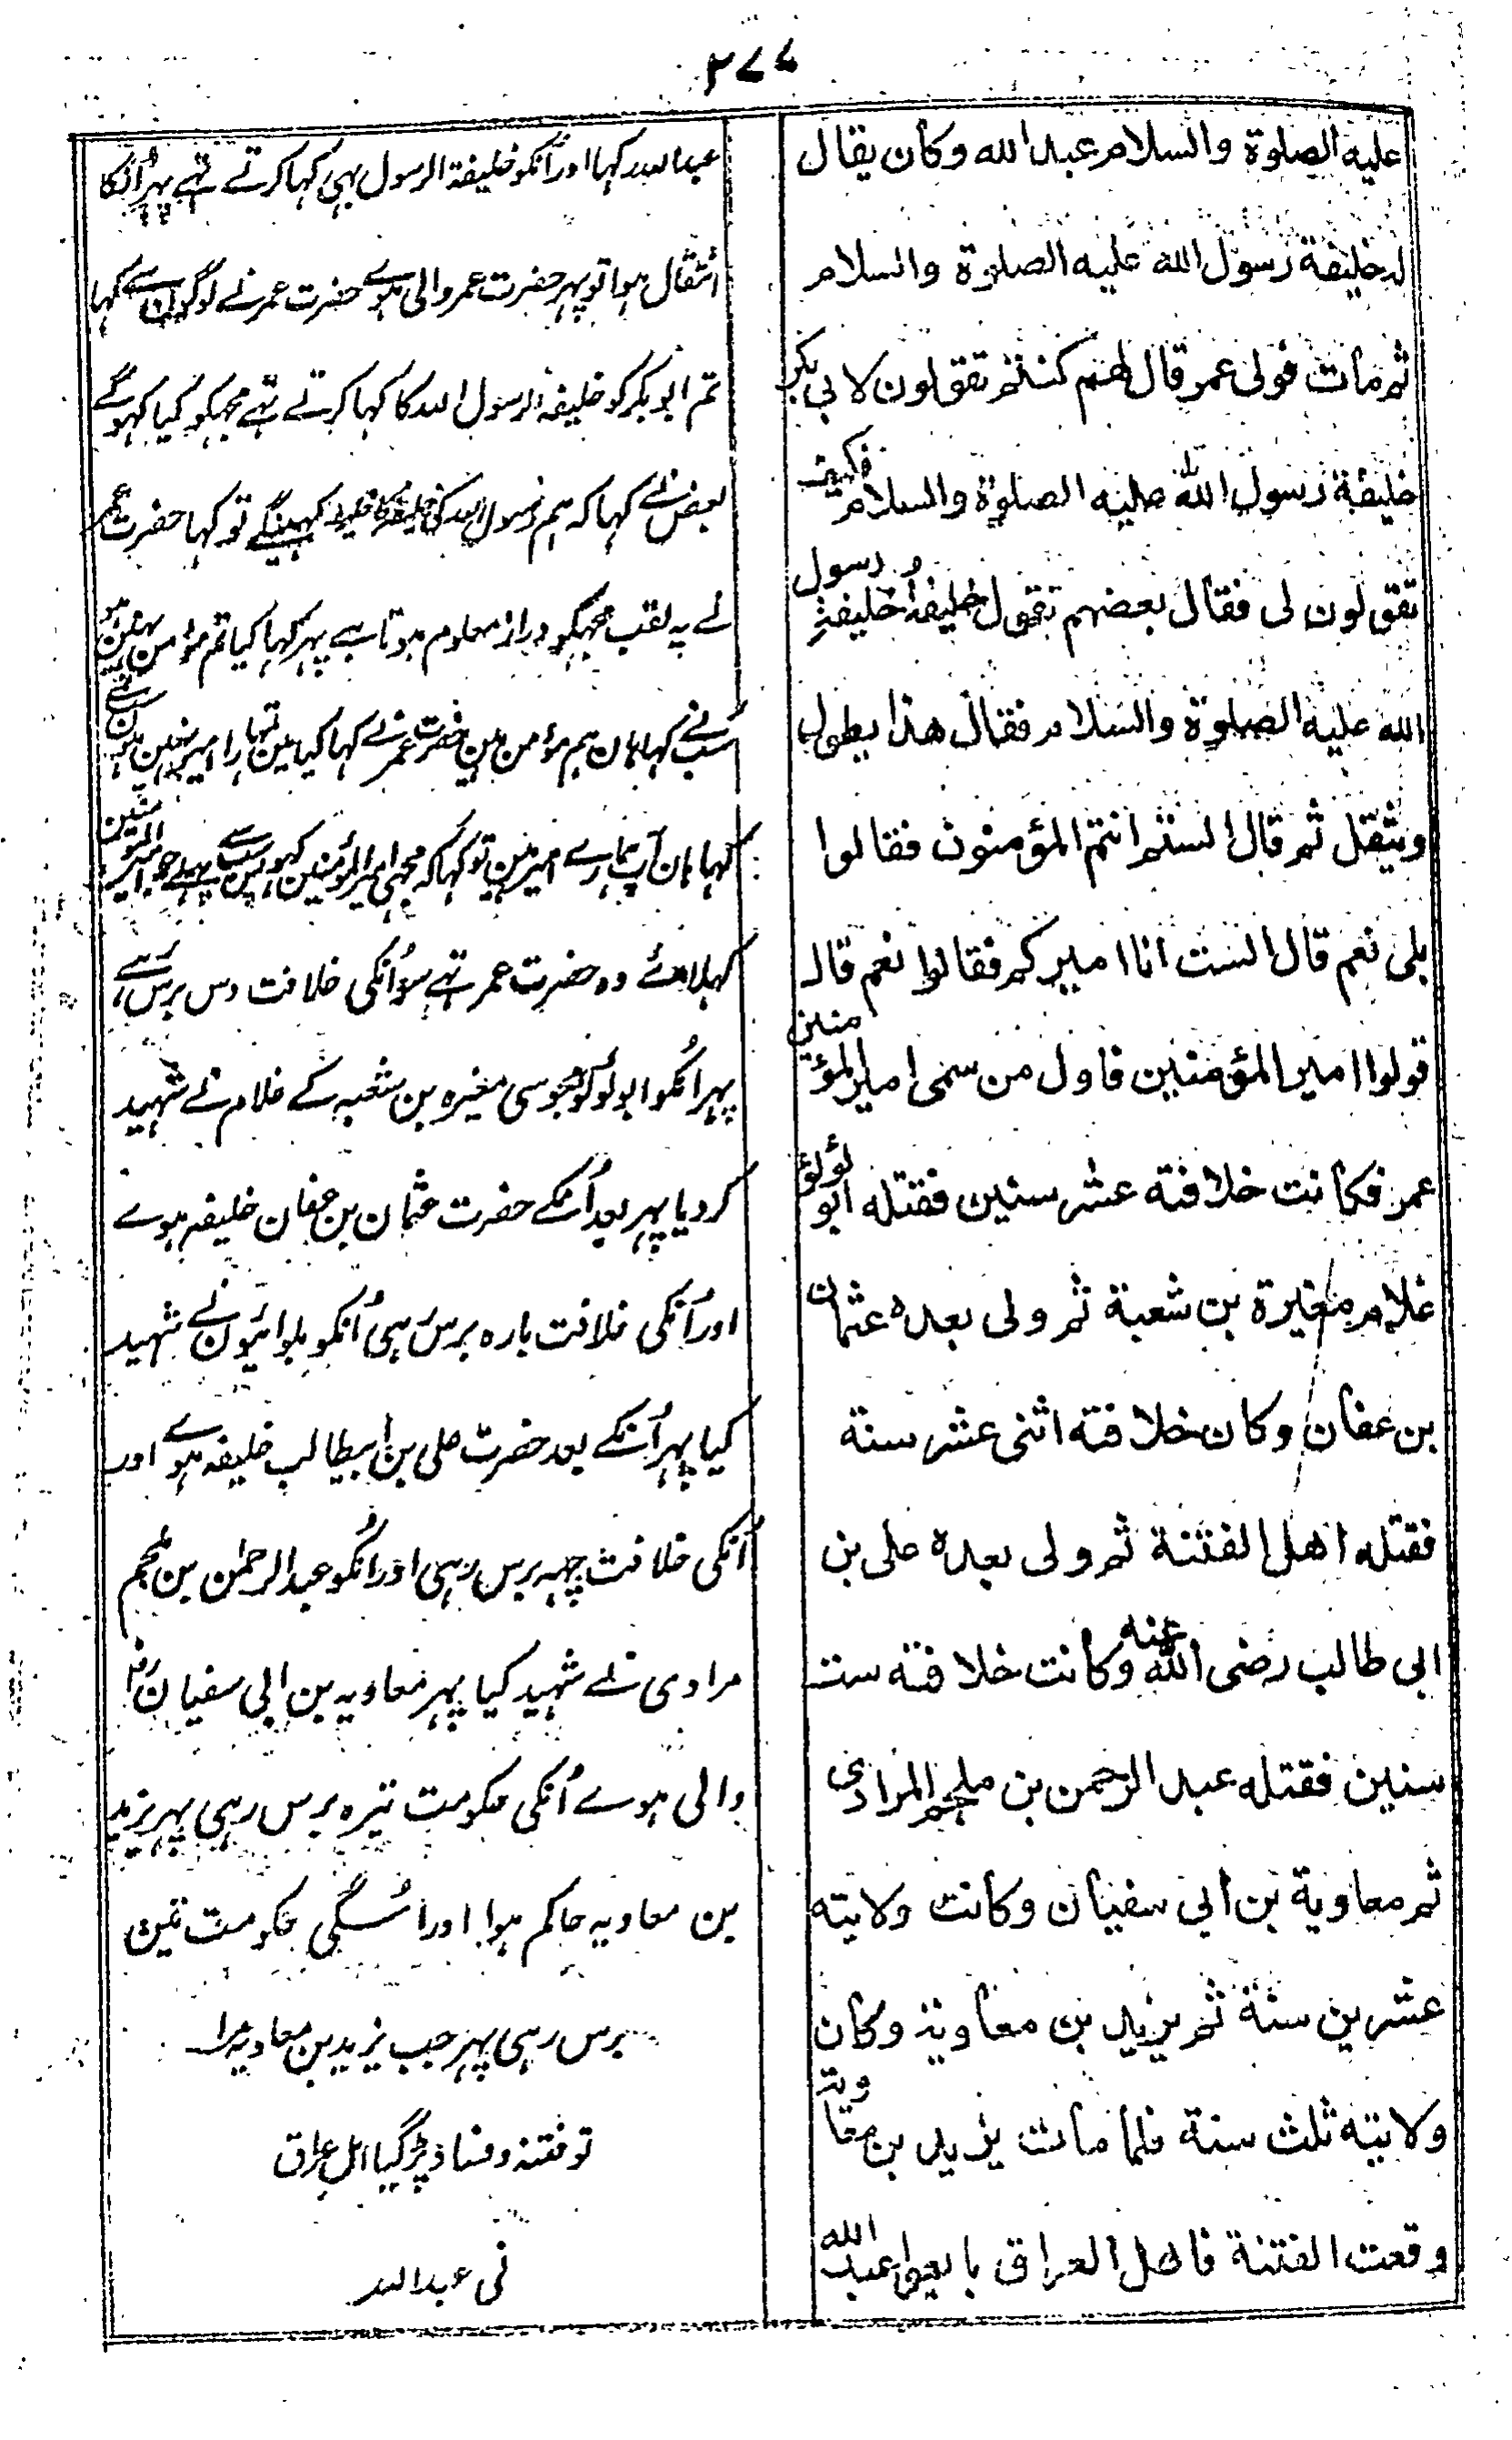 ۲۷۷
علیه الصلوة والسلام عبد الله وکان یقال
له خلیفة رسول الله علیه الصلوة والسلام
ثم مات فولی عمر قال لهم کنتم تقولون لابی بکر
خلیفة رسول الله علیه الصلوة والسلام فکیف
تقولون لی فقال بعضهم تقول خلیفةُ خلیفةِ رسول
الله علیه الصلوة والسلام فقال هذا یطول
ویثقل ثم قال الستم انتم المؤمنون فقالوا
بلی نعم قال الست انا امیرکم فقالوا نعم قال
قولوا امیر المؤمنین فاول من سمی امیر المؤمنین
عمر فکانت خلافته عشر سنین فقتله ابو لؤلؤ
غلام مغیرة بن شعبة ثم ولی بعده عثمان
بن عفان وکان خلافته اثنی عشر سنة
فقتله اهل الفتنة ثم ولی بعده علی بن
ابی طالب رضی الله عنه وکانت خلافته ست
سنین فقتله عبد الرحمن بن ملجم المرادی
ثم معاویة بن ابی سفیان وکانت ولایته
عشرین سنة ثم یزید بن معاویة وکان
ولایته ثلث سنة فلما مات یزید بن معاویة
وقعت الفتنة فاهل العراق بایعوا عبد الله
عبداللہ کہا اور اُنکو خلیفۃ الرسول بہی کہا کرتے تہے پہر اُنکا
انتقال ہوا تو پہر حضرت عمر والی ہوے حضرت عمر نے لوگون سے کہا
تم ابو بکر کو خلیفہ رسول اللہ کا کہا کرتے تہے مجہکو کیا کہو گے
بعض نے کہا کہ ہم رسول اللہ کی خلیفہ کا خلیفہ کہینگے تو کہا حضرت عمر
نے یہ لقب مجہکو دراز معلوم ہوتا ہے پہر کہا کیا تم مؤمن نہین ہو
سب نے کہا ہان ہم مؤمن ہین حضرت عمر نے کہا کیا مین تمہارا امیر نہین ہون
کہا ہان آپ ہمارے امیر ہین تو کہا کہ مجہی امیر المؤمنین کہو پس سب سے پہلے جو امیر المؤمنین
کہلائے وہ حضرت عمر تہے سو اُنکی خلافت دس برس رہے
پہر انکو ابو لؤلؤ مجوسی مغیرہ بن شعبہ کے غلام نے شہید
کر دیا پہر بعد اُنکے حضرت عثمان بن عفان خلیفہ ہوے
اور اُنکی خلافت بارہ برس رہی اُنکو بلوائیون نے شہید
کیا پہر اُنکے بعد حضرت علی بن ابیطالب خلیفہ ہوے اور
اُنکی خلافت چہہ برس رہی اور انکو عبد الرحمٰن بن ملجم
مرادی نے شہید کیا پہر معاویہ بن ابی سفیان رض
والی ہوے اُنکی حکومت تیرہ برس رہی پہر یزید
بن معاویہ حاکم ہوا اور اُسکی حکومت تین
برس رہی پہر جب یزید بن معاویہ مرا
تو فتنہ و فساد پڑ گیا اہل عراق
نی عبداللہ